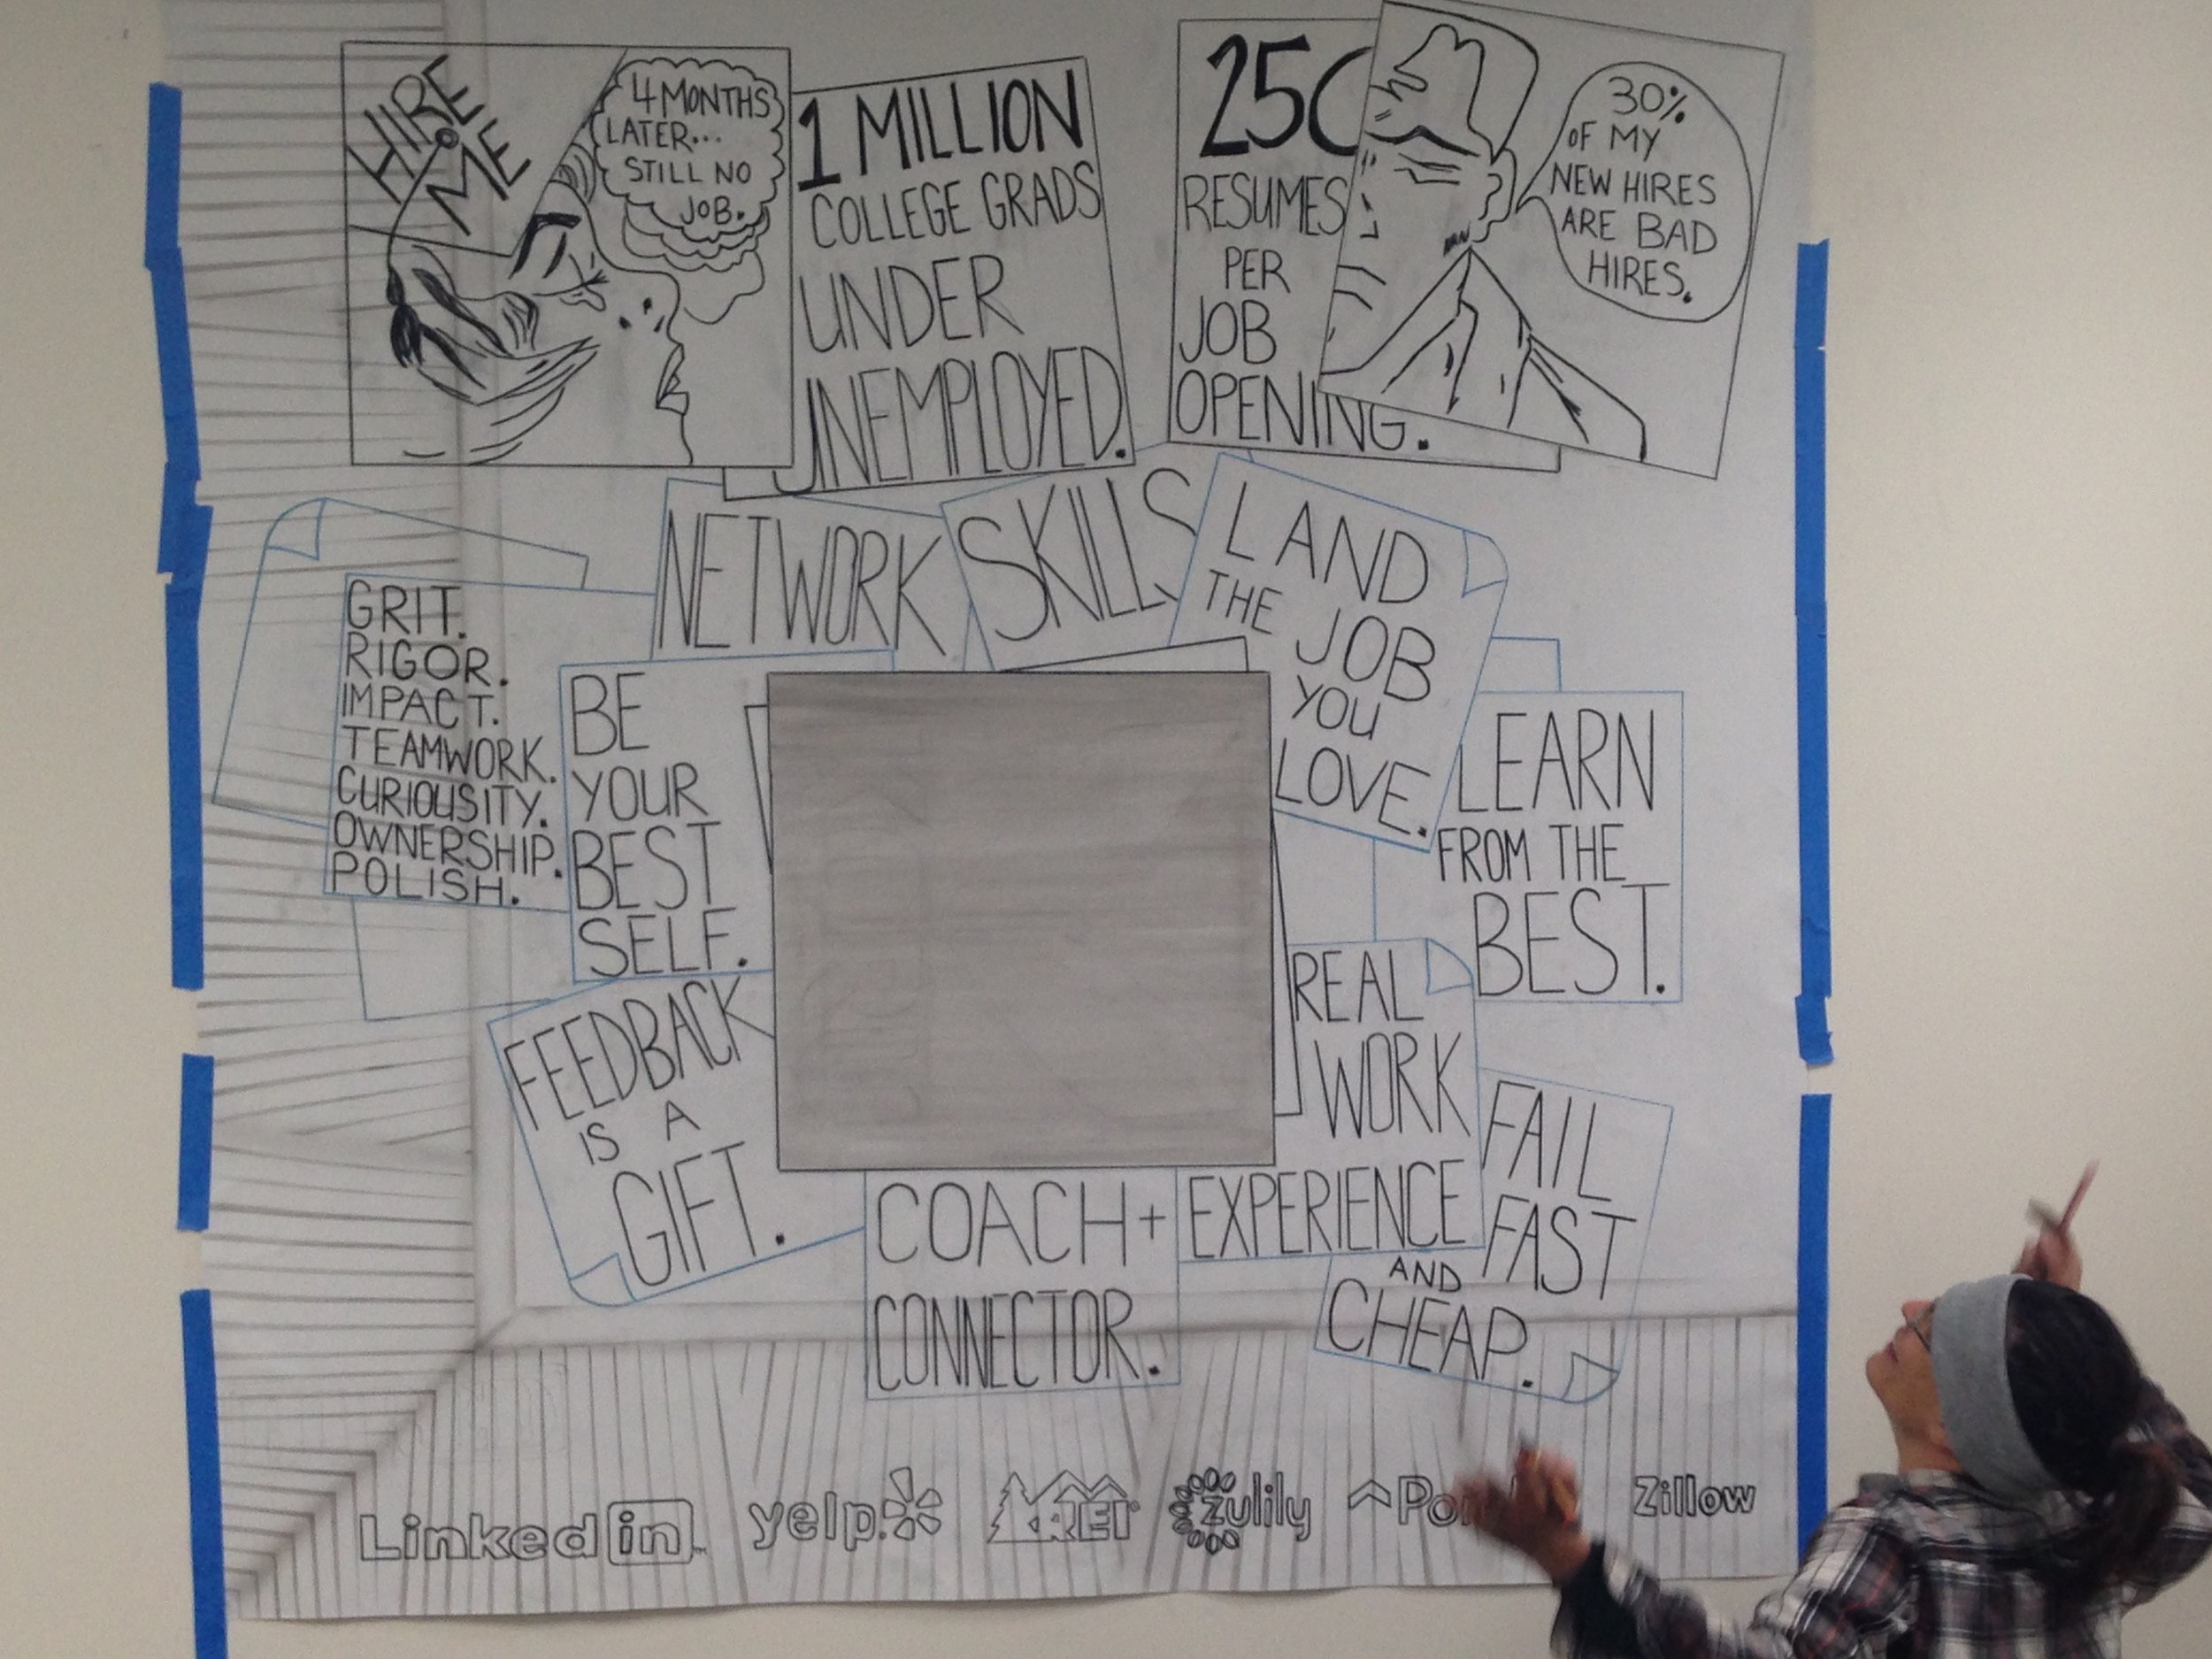 HIRE
ME
4 MONTHS
LATER...
STILL NO
JOB.
1 MILLION
COLLEGE GRADS
UNDER
UNEMPLOYED.
250
RESUMES
PER
JOB
OPENING.
30%
OF MY
NEW HIRES
ARE BAD
HIRES.
NETWORK
SKILLS
LAND
THE JOB
YOU
LOVE.
GRIT.
RIGOR.
IMPACT.
TEAMWORK.
CURIOUSITY.
OWNERSHIP.
POLISH.
BE
YOUR
BEST
SELF.
LEARN
FROM THE
BEST.
FEEDBACK
IS A
GIFT.
REAL
WORK
EXPERIENCE
FAIL
FAST
AND
CHEAP.
COACH +
CONNECTOR.
Linked in
yelp
REI
zulily
Zillow